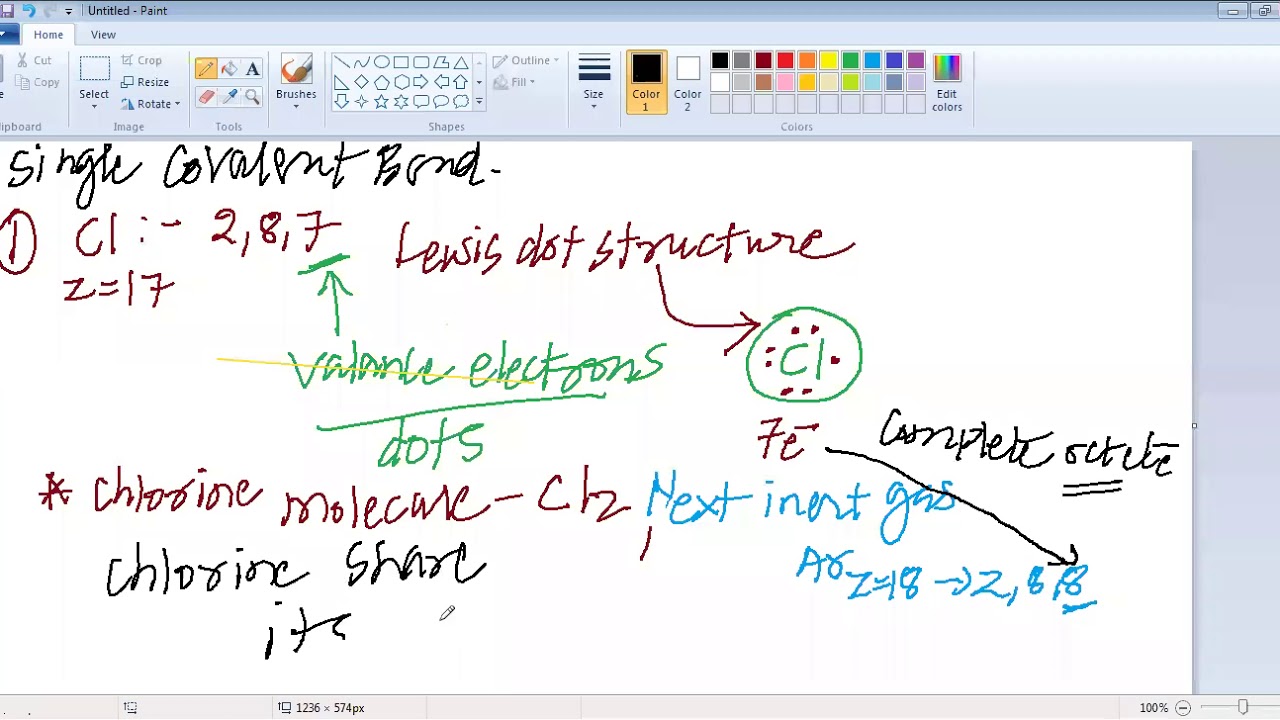 Untitled - Paint
Home View
Cut
Copy
lipboard
Select
Crop
Resize
Rotate
Image
A
Tools
Brushes
Outline
Fill
Shapes
Size
Color 1
Color 2
Edit colors
Colors
Single Covalent Bond.
① Cl :- 2,8,7
z=17
Lewis dot structure
Cl
valance electrons
dots
7e⁻
Complete octete
* Chlorine molecule - Cl2,
Next inert gas
Ar z=18 → 2,8,8
Chlorine share
its
1236 × 574px
100%